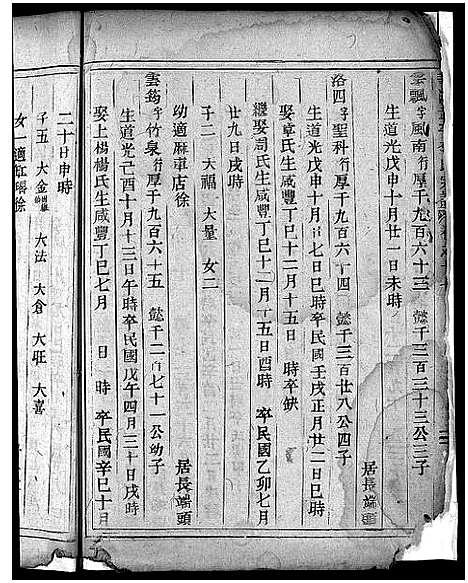 雲飄字風南行厚千九百六十三 懿千三百三十三公三子
居長端頭
生道光戊申十月廿一日未時
洛四字聖科行厚千九百六十四 懿千三百廿八公四子
生道光戊申十月 七日巳時卒民國壬戌正月廿二日巳時
娶章氏生咸豐丁巳十二月十五日 時卒缺
繼娶周氏生咸豐丁巳十二月十五日酉時 卒民國乙卯七月
廿九日戌時
子二 大福 大量 女二
幼適麻車店徐
居長端頭
雲筠字竹泉行厚千九百六十五 懿千二百七十一公幼子
生道光己酉十月十三日午時卒民國戊午四月二十日戌時
娶上楊楊氏生咸豐丁巳七月 日 時 卒民國辛巳十月
二十日申時
子五 大金 大法 大倉 大旺 大喜
女一適 徐